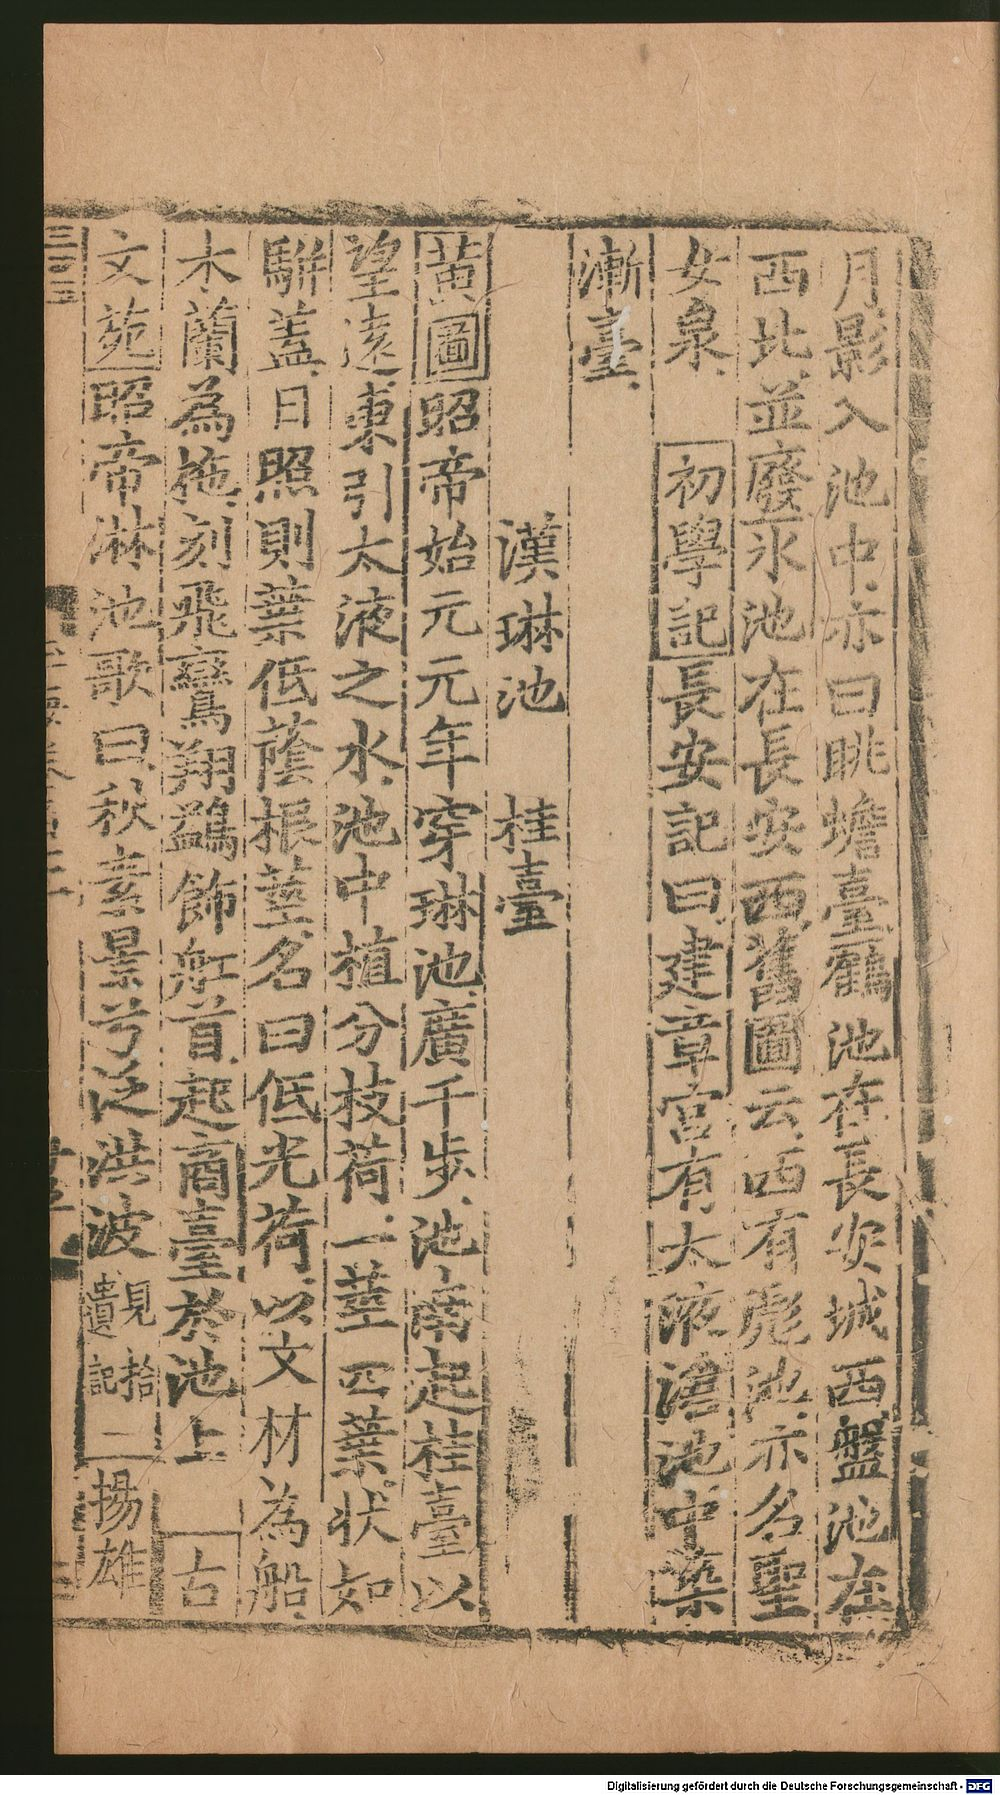 月影入池中亦曰眺蟾臺鶴池在長安城西盤池在
西北並廢氷池在長安西舊圖云西有彪池亦名聖
女泉 初學記長安記曰建章宮有太液池中築
漸臺
漢琳池 桂臺
黃圖昭帝始元元年穿琳池廣千步池南起桂臺以
望遠東引太液之水池中植分枝荷一莖四葉狀如
駢蓋日照則葉低蔭根莖名曰低光荷以文材為船
木蘭為柂刻飛鸞翔鷁飾船首起商臺於池上 古
文苑昭帝淋池歌曰秋素景兮泛洪波見拾遺記二揚雄
三百三
Digitalisierung gefördert durch die Deutsche Forschungsgemeinschaft - DFG